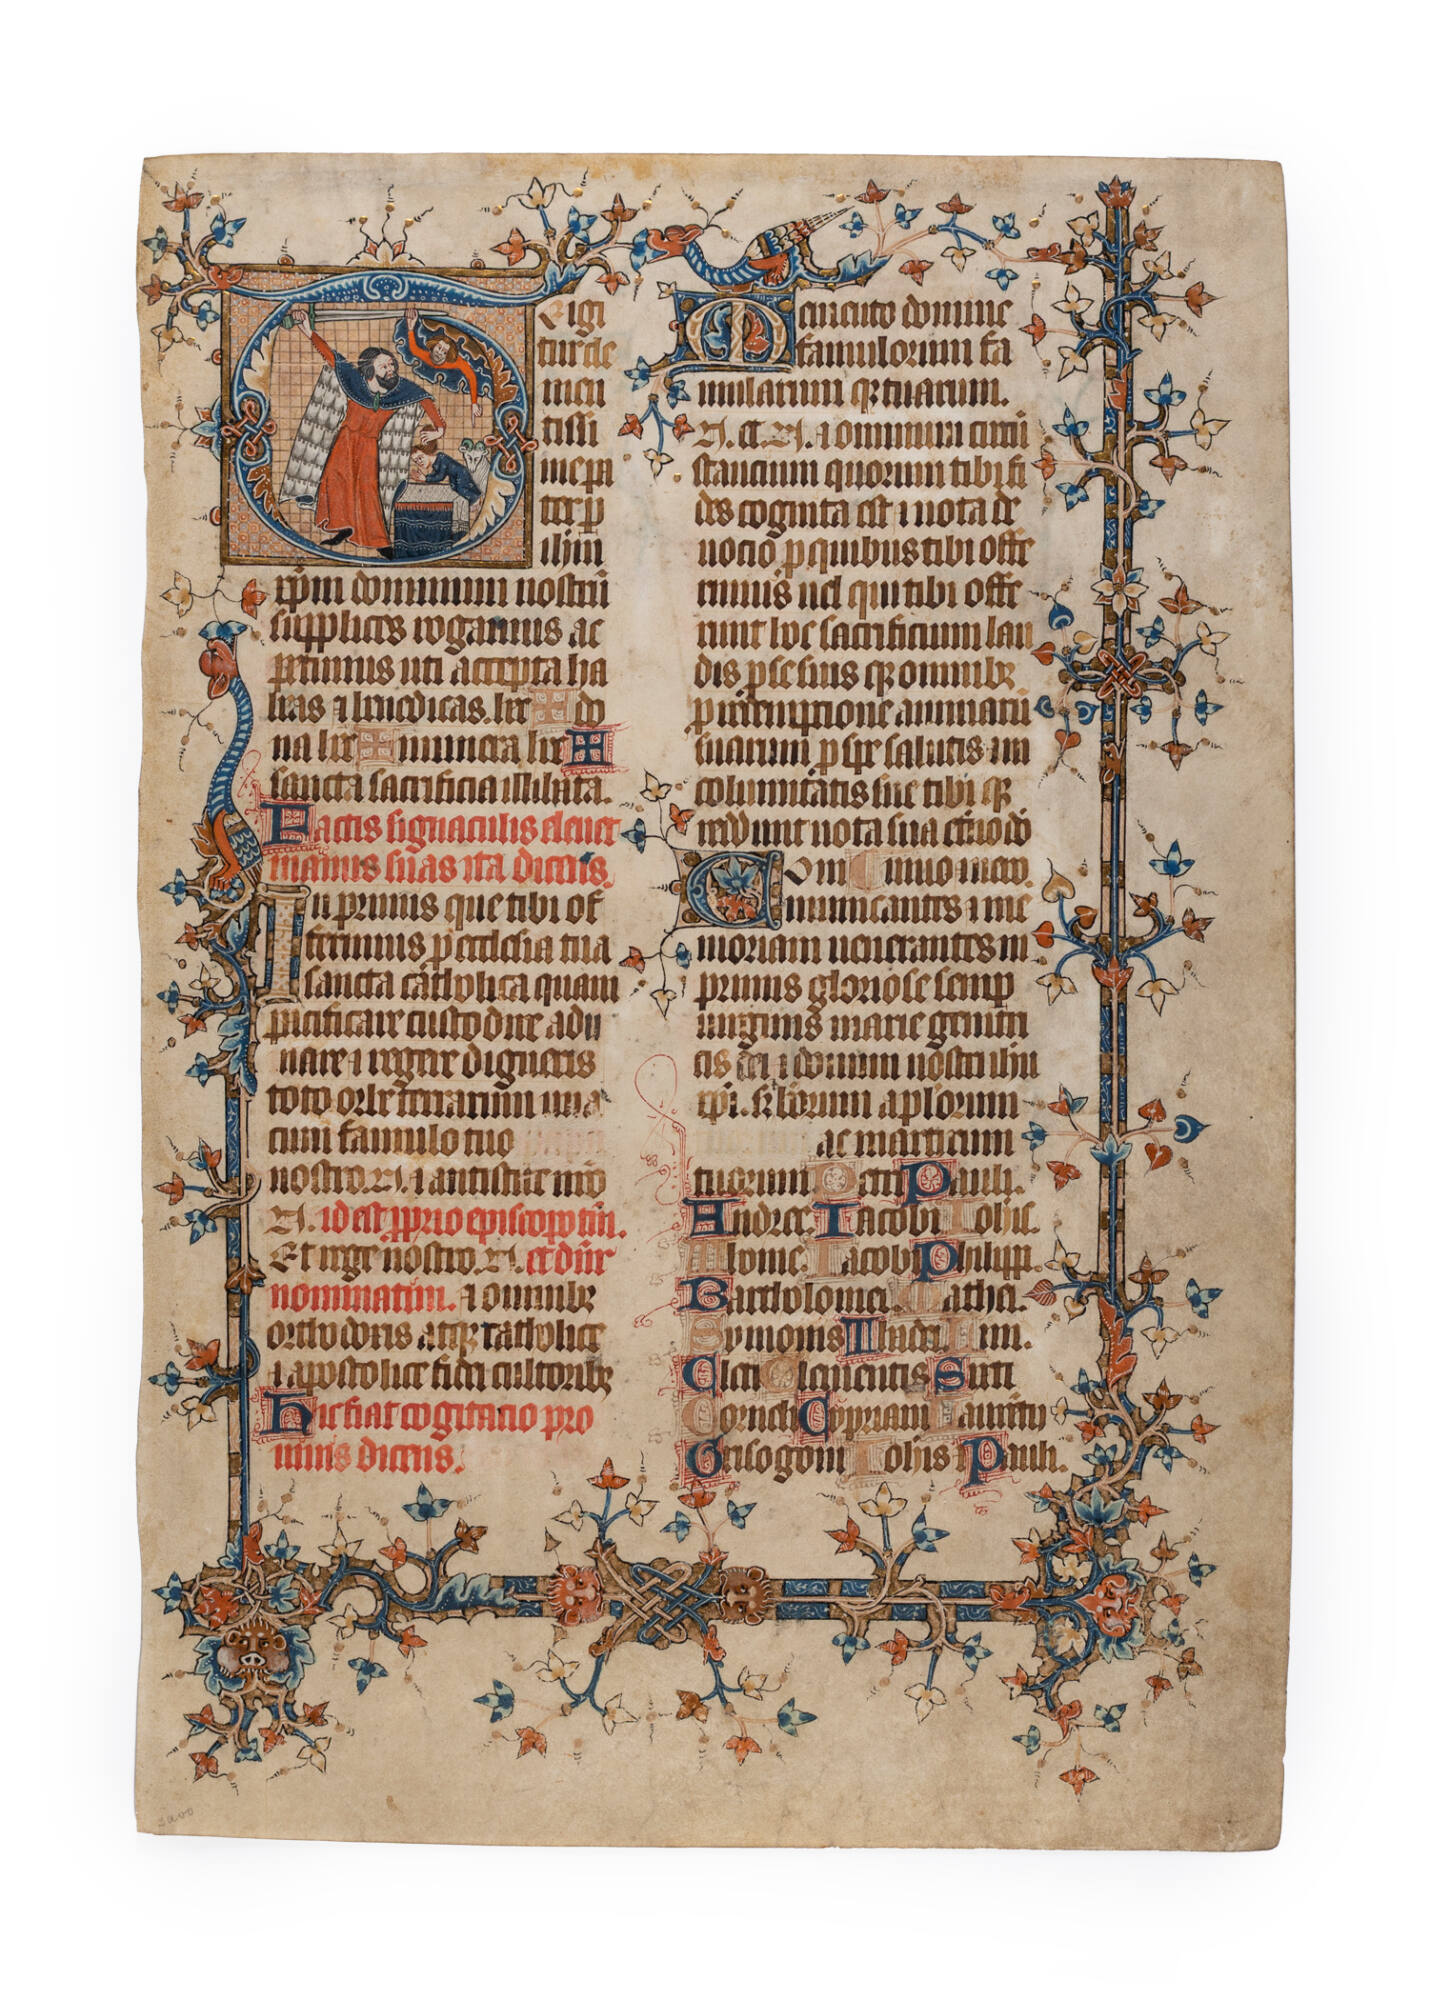 T E igi
tur cle
men
tissi
me pa
ter p
ihm
xpm dominum nostru
supplices rogamus ac
petimus uti accepta ha
beas ⁊ benedicas. hec ✠ do
na hec ✠ munera hec ✠
sancta sacrificia illibata.
Factis signaculis elevet
manus suas ita dicens.
In primis que tibi of
ferimus p ecclesia tua
sancta catholica quam
pacificare custodire adu
nare ⁊ regere digneris
toto orbe terrarum una
cum famulo tuo papa
nostro .N. ⁊ antistite nro
.N. id est pprio episcopo tm.
Et rege nostro .N. et dnr
nominatim. ⁊ omnibz
orthodoxis atqz catholice
⁊ apostolice fidei cultoribz
Hic fiat cogitacio pro
vivis dicens.
Memento domine
famulorum fa
mularum qz tuarum.
.N. et .N. ⁊ omnium circu
stancium quorum tibi fi
des cognita est ⁊ nota de
uocio p quibus tibi offe
rimus uel qui tibi offe
runt hoc sacrificium lau
dis p se suis qz omnibz
p redemptione animaru
suarum p spe salutis ⁊ in
columitatis sue tibi qz
reddunt uota sua etno do
Com uiuo uero.
municantes ⁊ me
moriam uenerantes in
primis gloriose semp
uirginis marie genitri
cis dei ⁊ domini nostri ihu
xpi. s⁊ beorum aplorum
ac martirum
tuorum Petri Pauli.
Andree. Iacobi Iohis.
Thome. Iacobi Philippi.
Bartholomei. Mathei.
Symonis Thadei Lini.
Cleti Clementis Sixti
Cornelii Cypriani Laurentii
Grisogoni Iohis ⁊ Pauli.